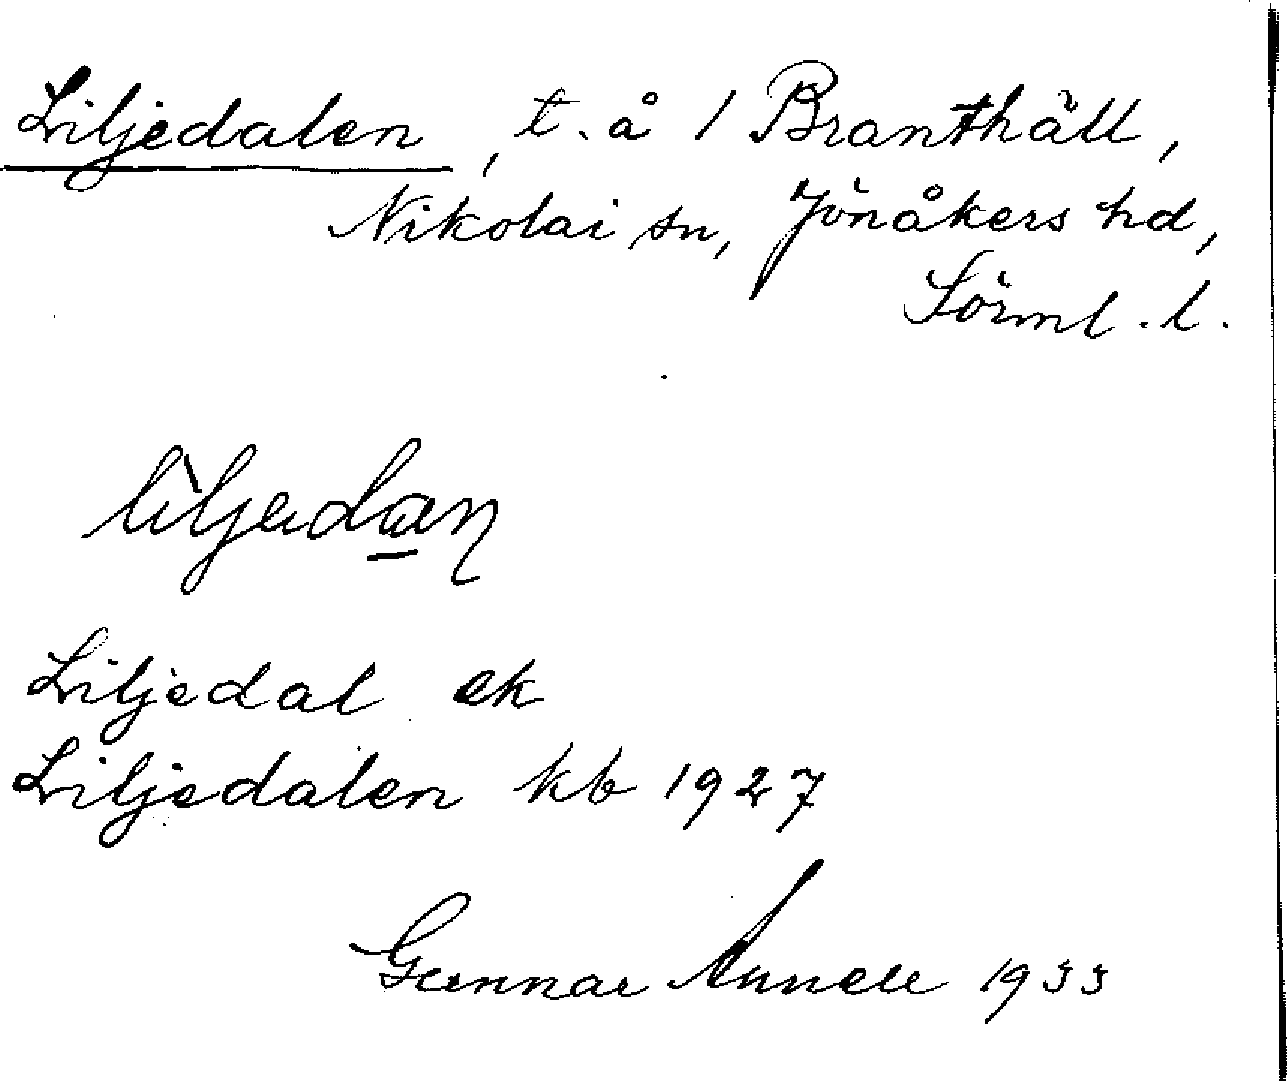 Liljedalen, t. å 1 Branthäll,
Nikolai sn, Jönåkers hd,
Sörml. l.
liljedan
Liljedal ek
Liljedalen kb 1927
Gunnar Annell 1933